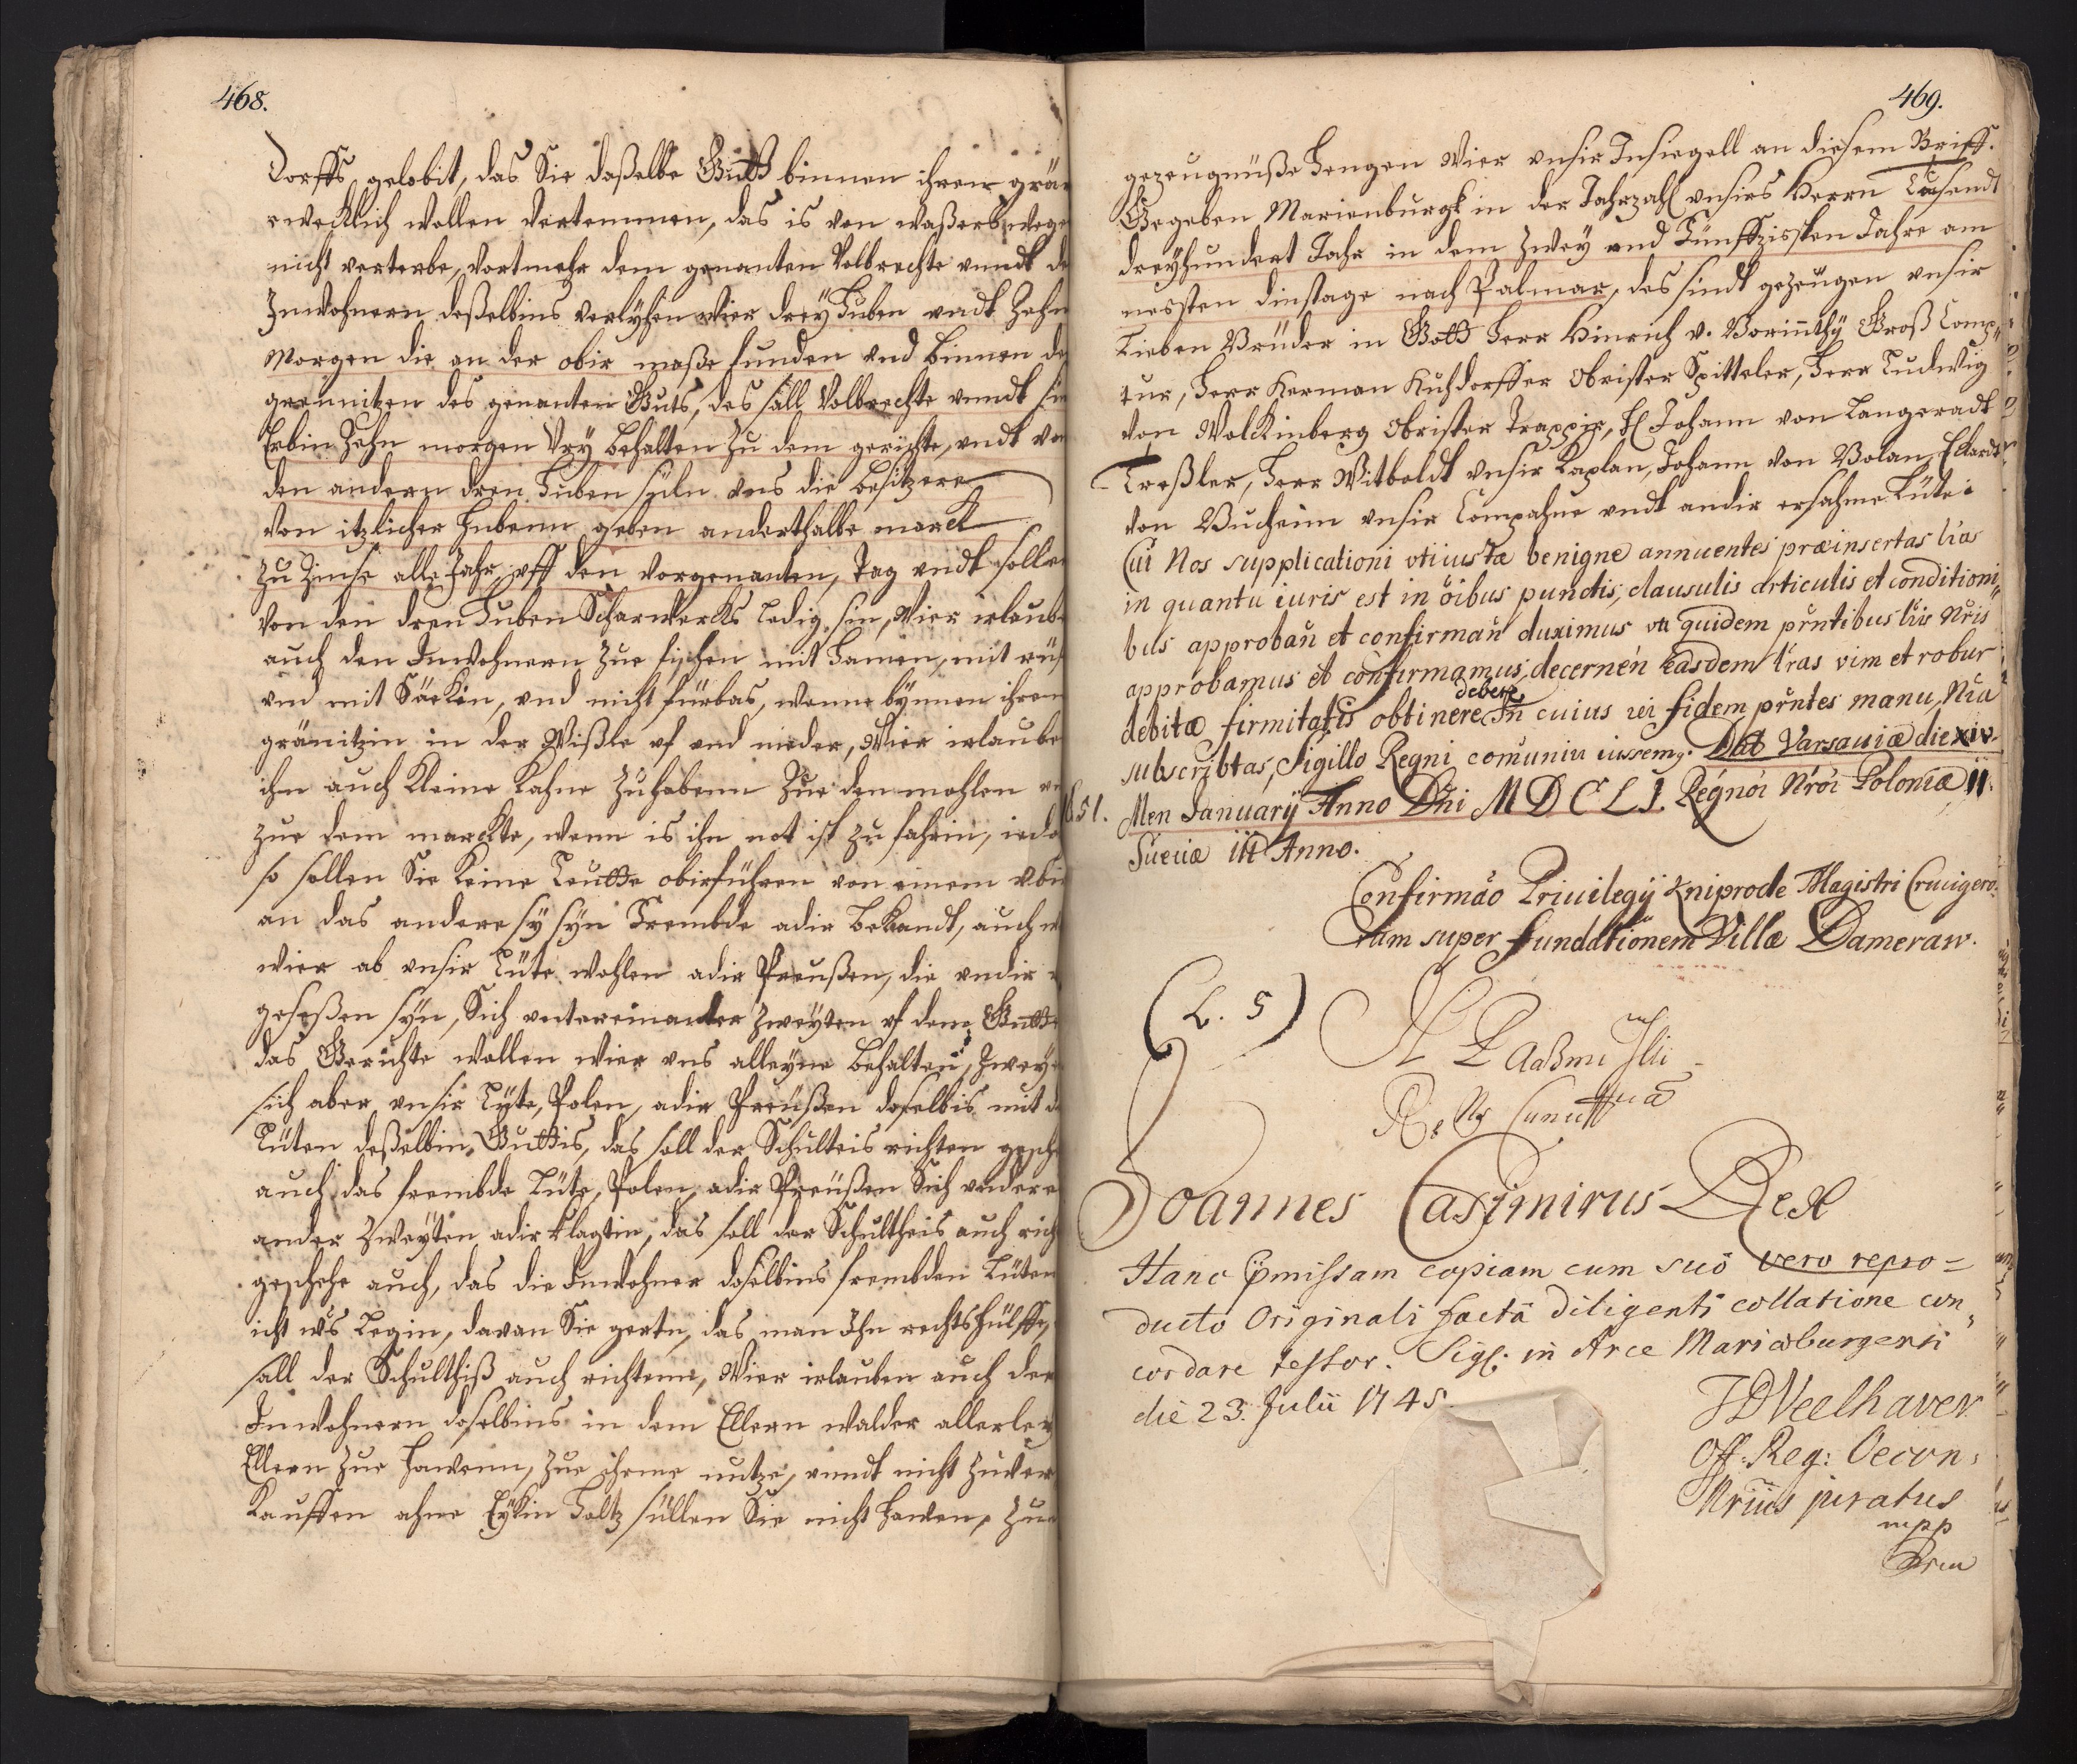 468.
Dorffs gelobit, das Sie daßelbe Gutt binnen ihren grän
wecklich wollen vertemmen, das is von waßers wege
nicht verterbe, Vortmehr dem genanten Volbrechte vnndt de
Inwohnern deßelbins verlyhen wier drey Huben vndt Zehn
Morgen die an der obir maße funden vnd binnen de
grennitzen des genanten Guts, des sall Volbrechte vnndt sin
Erbin Zehn morgen Vry behalten Zu dem gerichte, vndt von
den andern dren Huben süln vns die besitzere
von itzlicher Hubenn geben anderthalbe marck
Zu Zinse alle Jahr vff den vorgenanten Tag vndt sollen
von den dren Huben Scharwercks ledig sin, Wier irlaube
auch den Inwohnern Zue fischen mit Hamen, mit rüs
vnd mit Säckin, vnd nicht fürbas, wenne bynnen ihren
gränitzin in der Wißle vf vnd nieder, Wier irlaube
ihn auch Kleine Kahne Zuhabenn Zue den mohlen vn
zue dem marckte, wenn is ihn not ist Zu fahrin, iedo
so sollen Sie Keine Leutte obirführen von einem Vbir
an das andere sy syn Frembde adir bekandt, auch w
wier ab vnsir Lüte wohlen adir Preußen, die vndir
geseßen syn, Sich vntereinander Zweyten vf dem Gutte
das Gerichte wollen wier vns alleyne behalten, Zweye
sich aber vnsir Lyte, Polen, adir Preußen doselbis mit de
Lüten deßelbin Guttis, das soll der Schulteis richten gesche
auch das frembde Lüte, Polen, adir Preüßen Sich vndere
ander Zweyten adir klagtin, das soll der Schultheis auch rich
geschehe auch, das die Inwohner doselbins frembden Lüten
icht vs Legin, davan Sie gertn, das man Ihn rechts hülffe,
sall der Schulthiß auch richtenn, Wier irlauben auch den
Inwohnern doselbins in dem Ellern walder allerley
Ellern Zue hawenn, Zue ihrme nutze, vnndt nicht Zuver
Kauffen ahne Eykin Holtz süllen Sie nicht hawen, Zu
469.
gezeugnüße Hengen Wier vnsir Insiegell an diesem Briff.
Gegeben Marienburgk in der Jahrzahl vnsirs Herrn Tusendt
dreyhundert Jahr in dem Zwey vnd Fünffzissten Jahre am
nessten dinstage nach Palmar, des sindt gezeugen vnsir
Lieben Brüder in Gott Herr Hinrich v. Borinnthy Groß Comp
tur, Herr Herman Kuhdorffer Obrister Spitteler, Herr Ludwig
von Wolckinberg Obrister Trappir, H Johann von Langeradt
Treßler, Herr Witboldt vnsir Kaplan, Johann von Bolan, Eckardt
von Bucheim vnsir Compahne vndt andir ersahme Lüte:
Cui Nos supplicationi uti iustæ benigne annuentes præinsertas lras
in quantũ iuris est in õibus punctis, clausulis articulis et conditioni
bus approbañ et confirmañ duximus uti quidem pr̃ntibus lris nr̃is
approbamus et confirmamus, decernen easdem lras vim et robur
debitæ firmitatis obtinere debere. In cuius rei fidem pr̃ntes manu Nr̃a
subscribtas, Sigillo Regni comuniri iussemq. Dat Varsaviæ die xiv
651. Men January Anno Dñi M D C L I. Regnor̃ Nr̃or̃ Poloniæ II.
Sueciæ III Anno.
Confirmão Priuilegÿ Kniprode Magistri Crucigero
rum super fundationem Villæ Dameraw.
(L. S)
Joannes Casimirus Rex
Hanc p̃missam copiam cum suo vero repro=
ducto Originali factâ diligenti collatione con
cordare testor. Sigl: in Arce Mariæburgensi
die 23. Julii 1745.
JDVeelhaver
Off: Reg: Oecon:
Nriius juratus
mpp